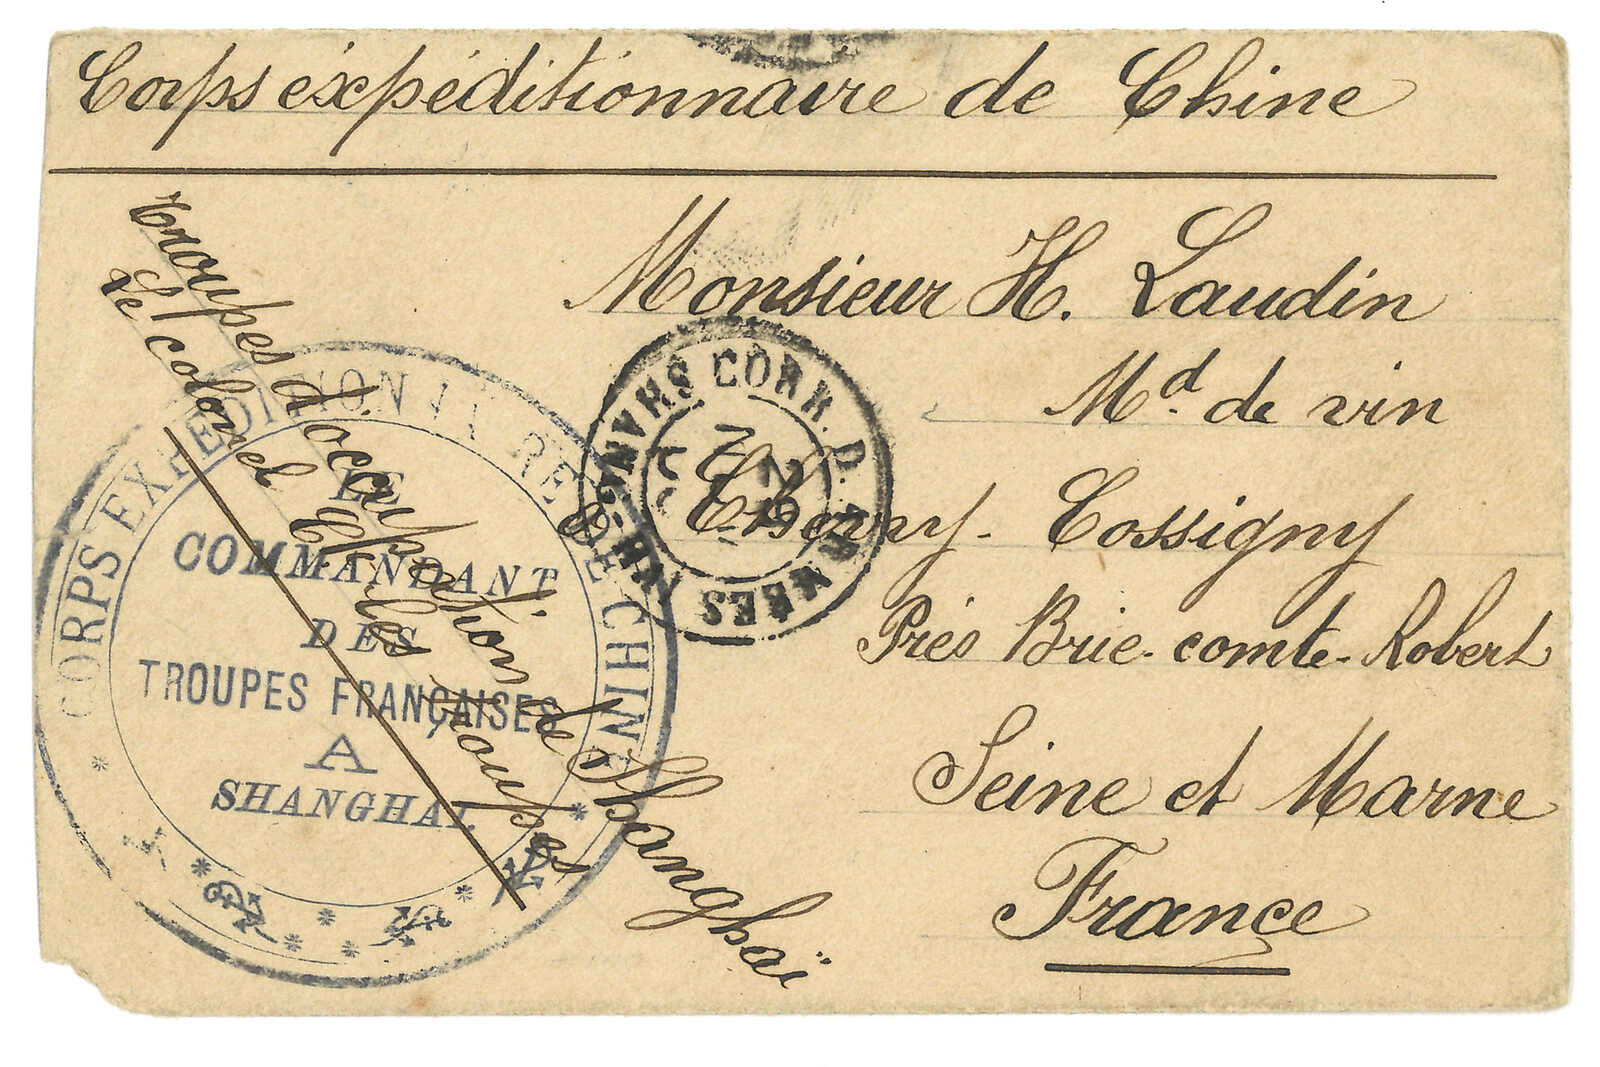 Corps expéditionnaire de Chine
Monsieur H. Laudin
Md. de vin
à Chevry-Cossigny
Près Brie-comte-Robert
Seine et Marne
France
Troupes d'occupation de Shanghaï
Le colonel Ct les troupes
CORPS EXPEDITIONNAIRE DE CHINE
LE
COMMANDANT
DES
TROUPES FRANÇAISES
A
SHANGHAI.
CORR. D. ARMÉES
SHANG-HAI